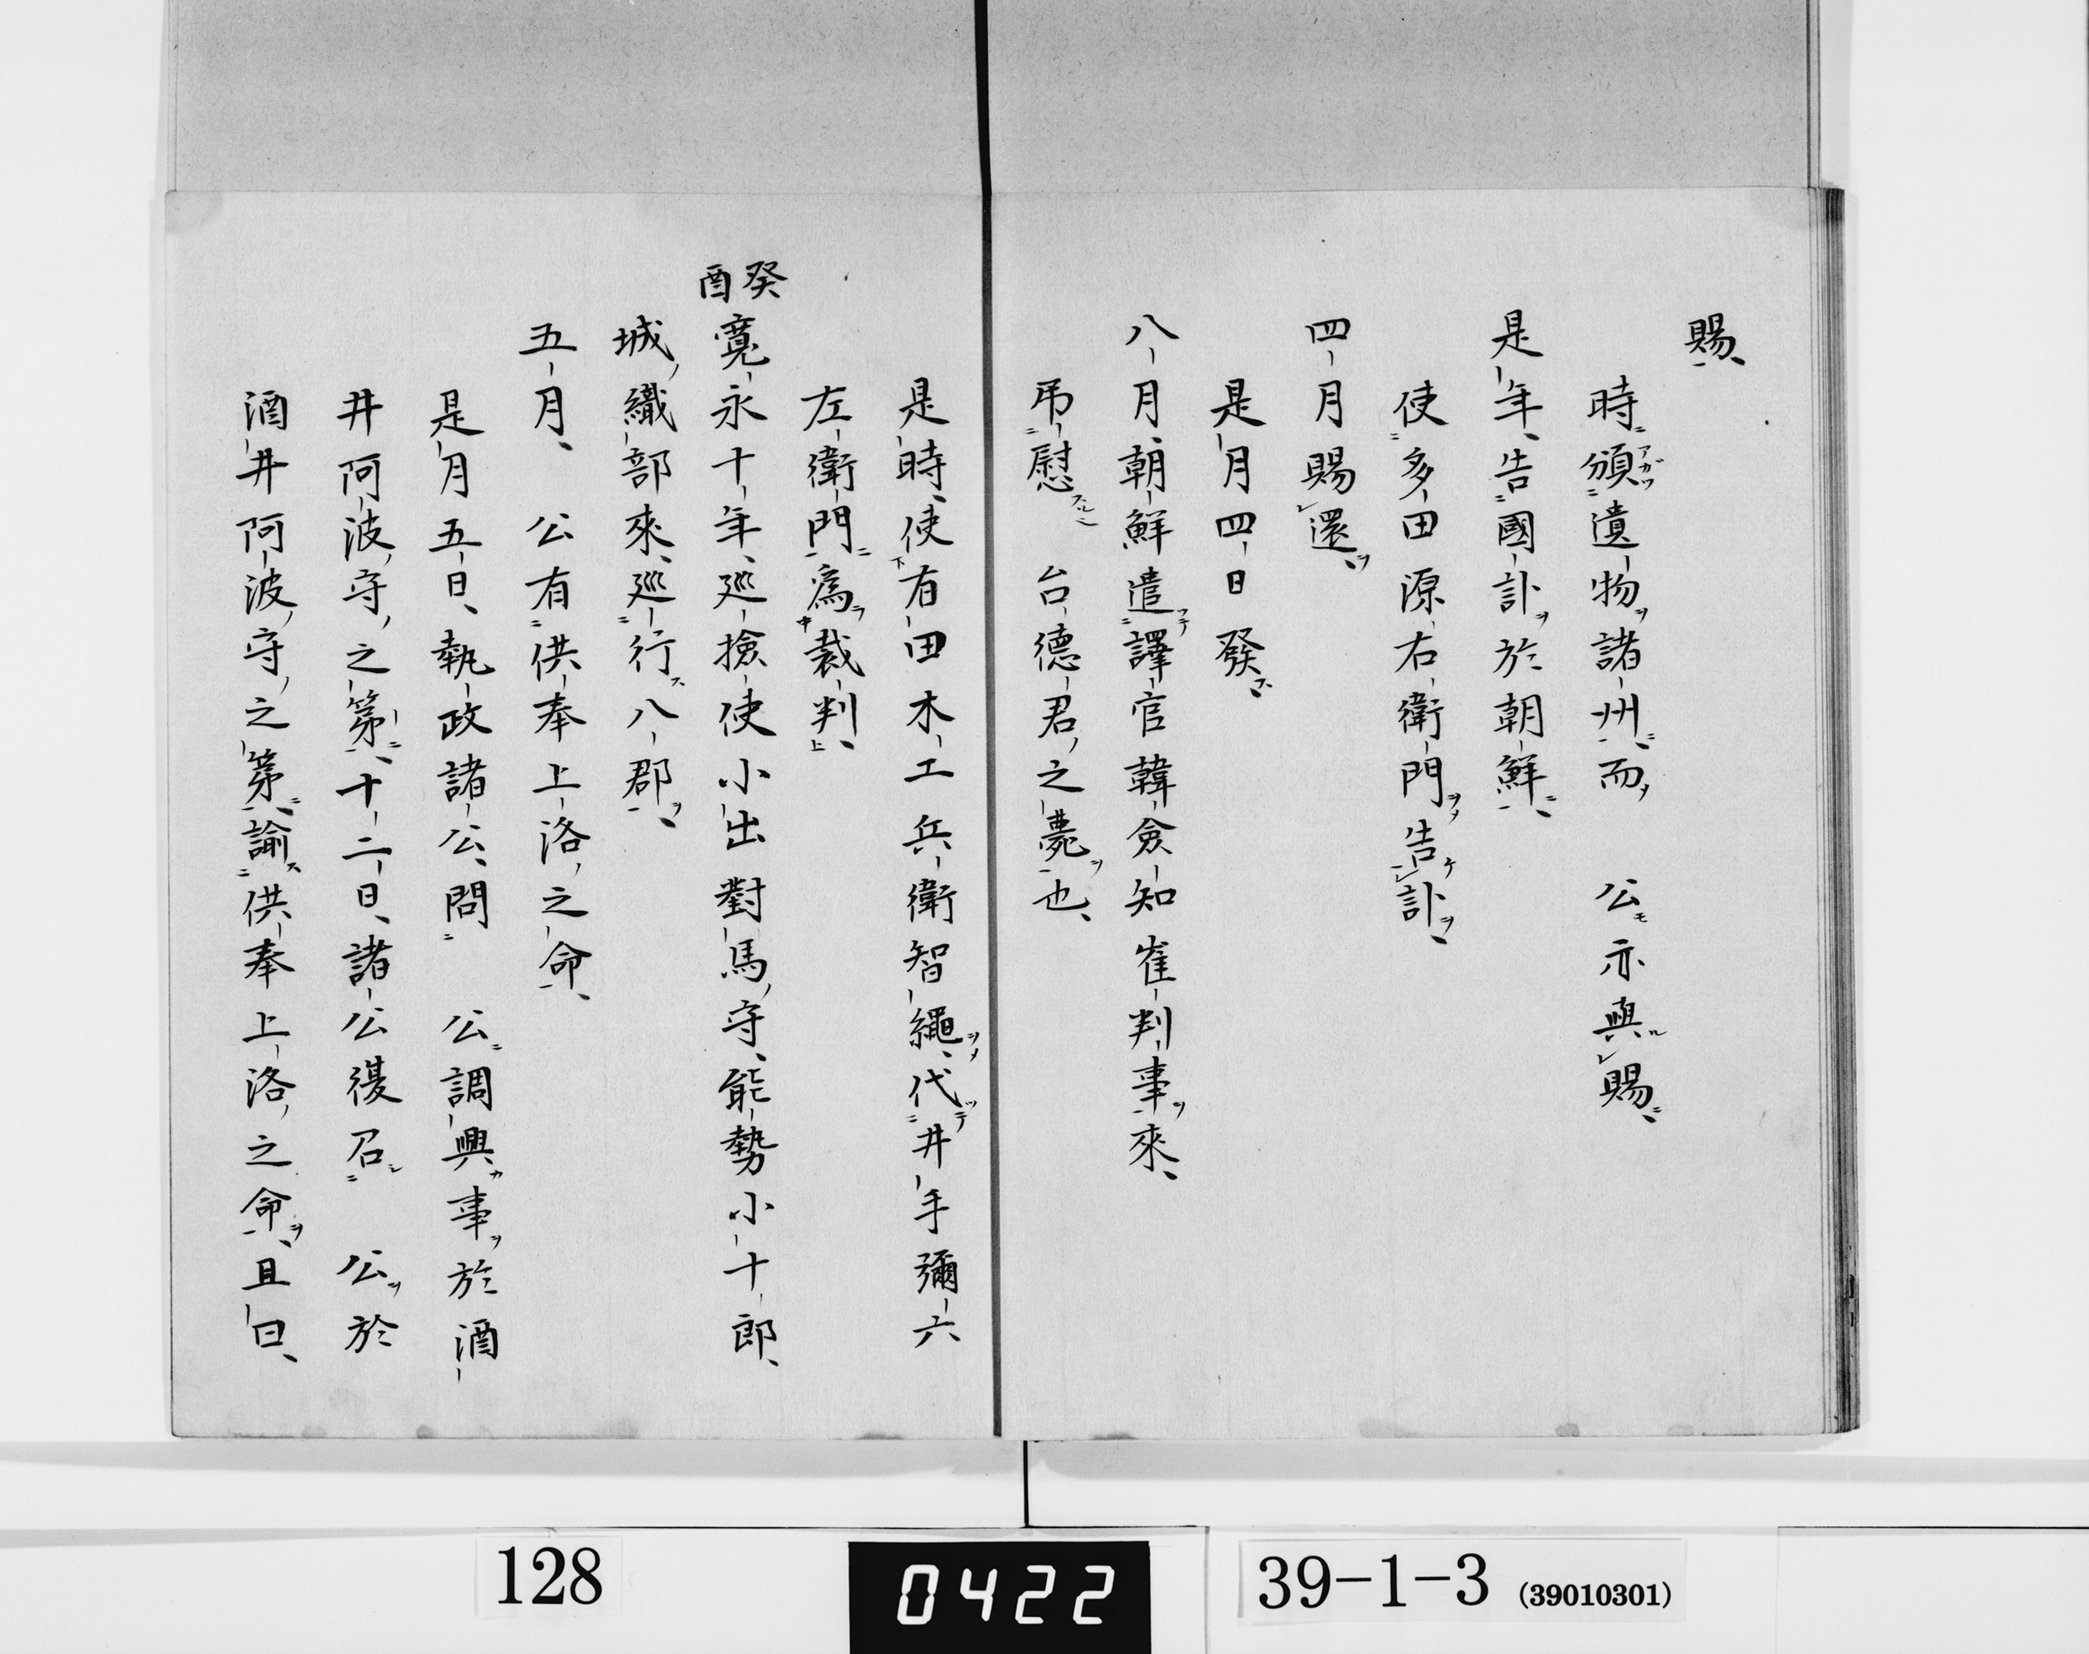 賜、
時頒遺物諸州、而　公亦與賜、
是年、告國訃於朝鮮、
使多田源右衛門告訃、
四月賜還、
是月四日發、
八月、朝鮮遣譯官韓僉知崔判事來、
弔慰　台德君之薨也、
是時、使有田木工兵衛智繩、代井手彌六
左衛門為裁判、
癸酉
寛永十年、巡撿使小出對馬守、能勢小十郎、
城織部來、巡行八郡、
五月、　公有供奉上洛之命、
是月五日、執政諸公、問　公調興事於酒
井阿波守之第、十二日、諸公復召　公於
酒井阿波守之第、諭供奉上洛之命、且曰、
128
0422
39-1-3 (39010301)